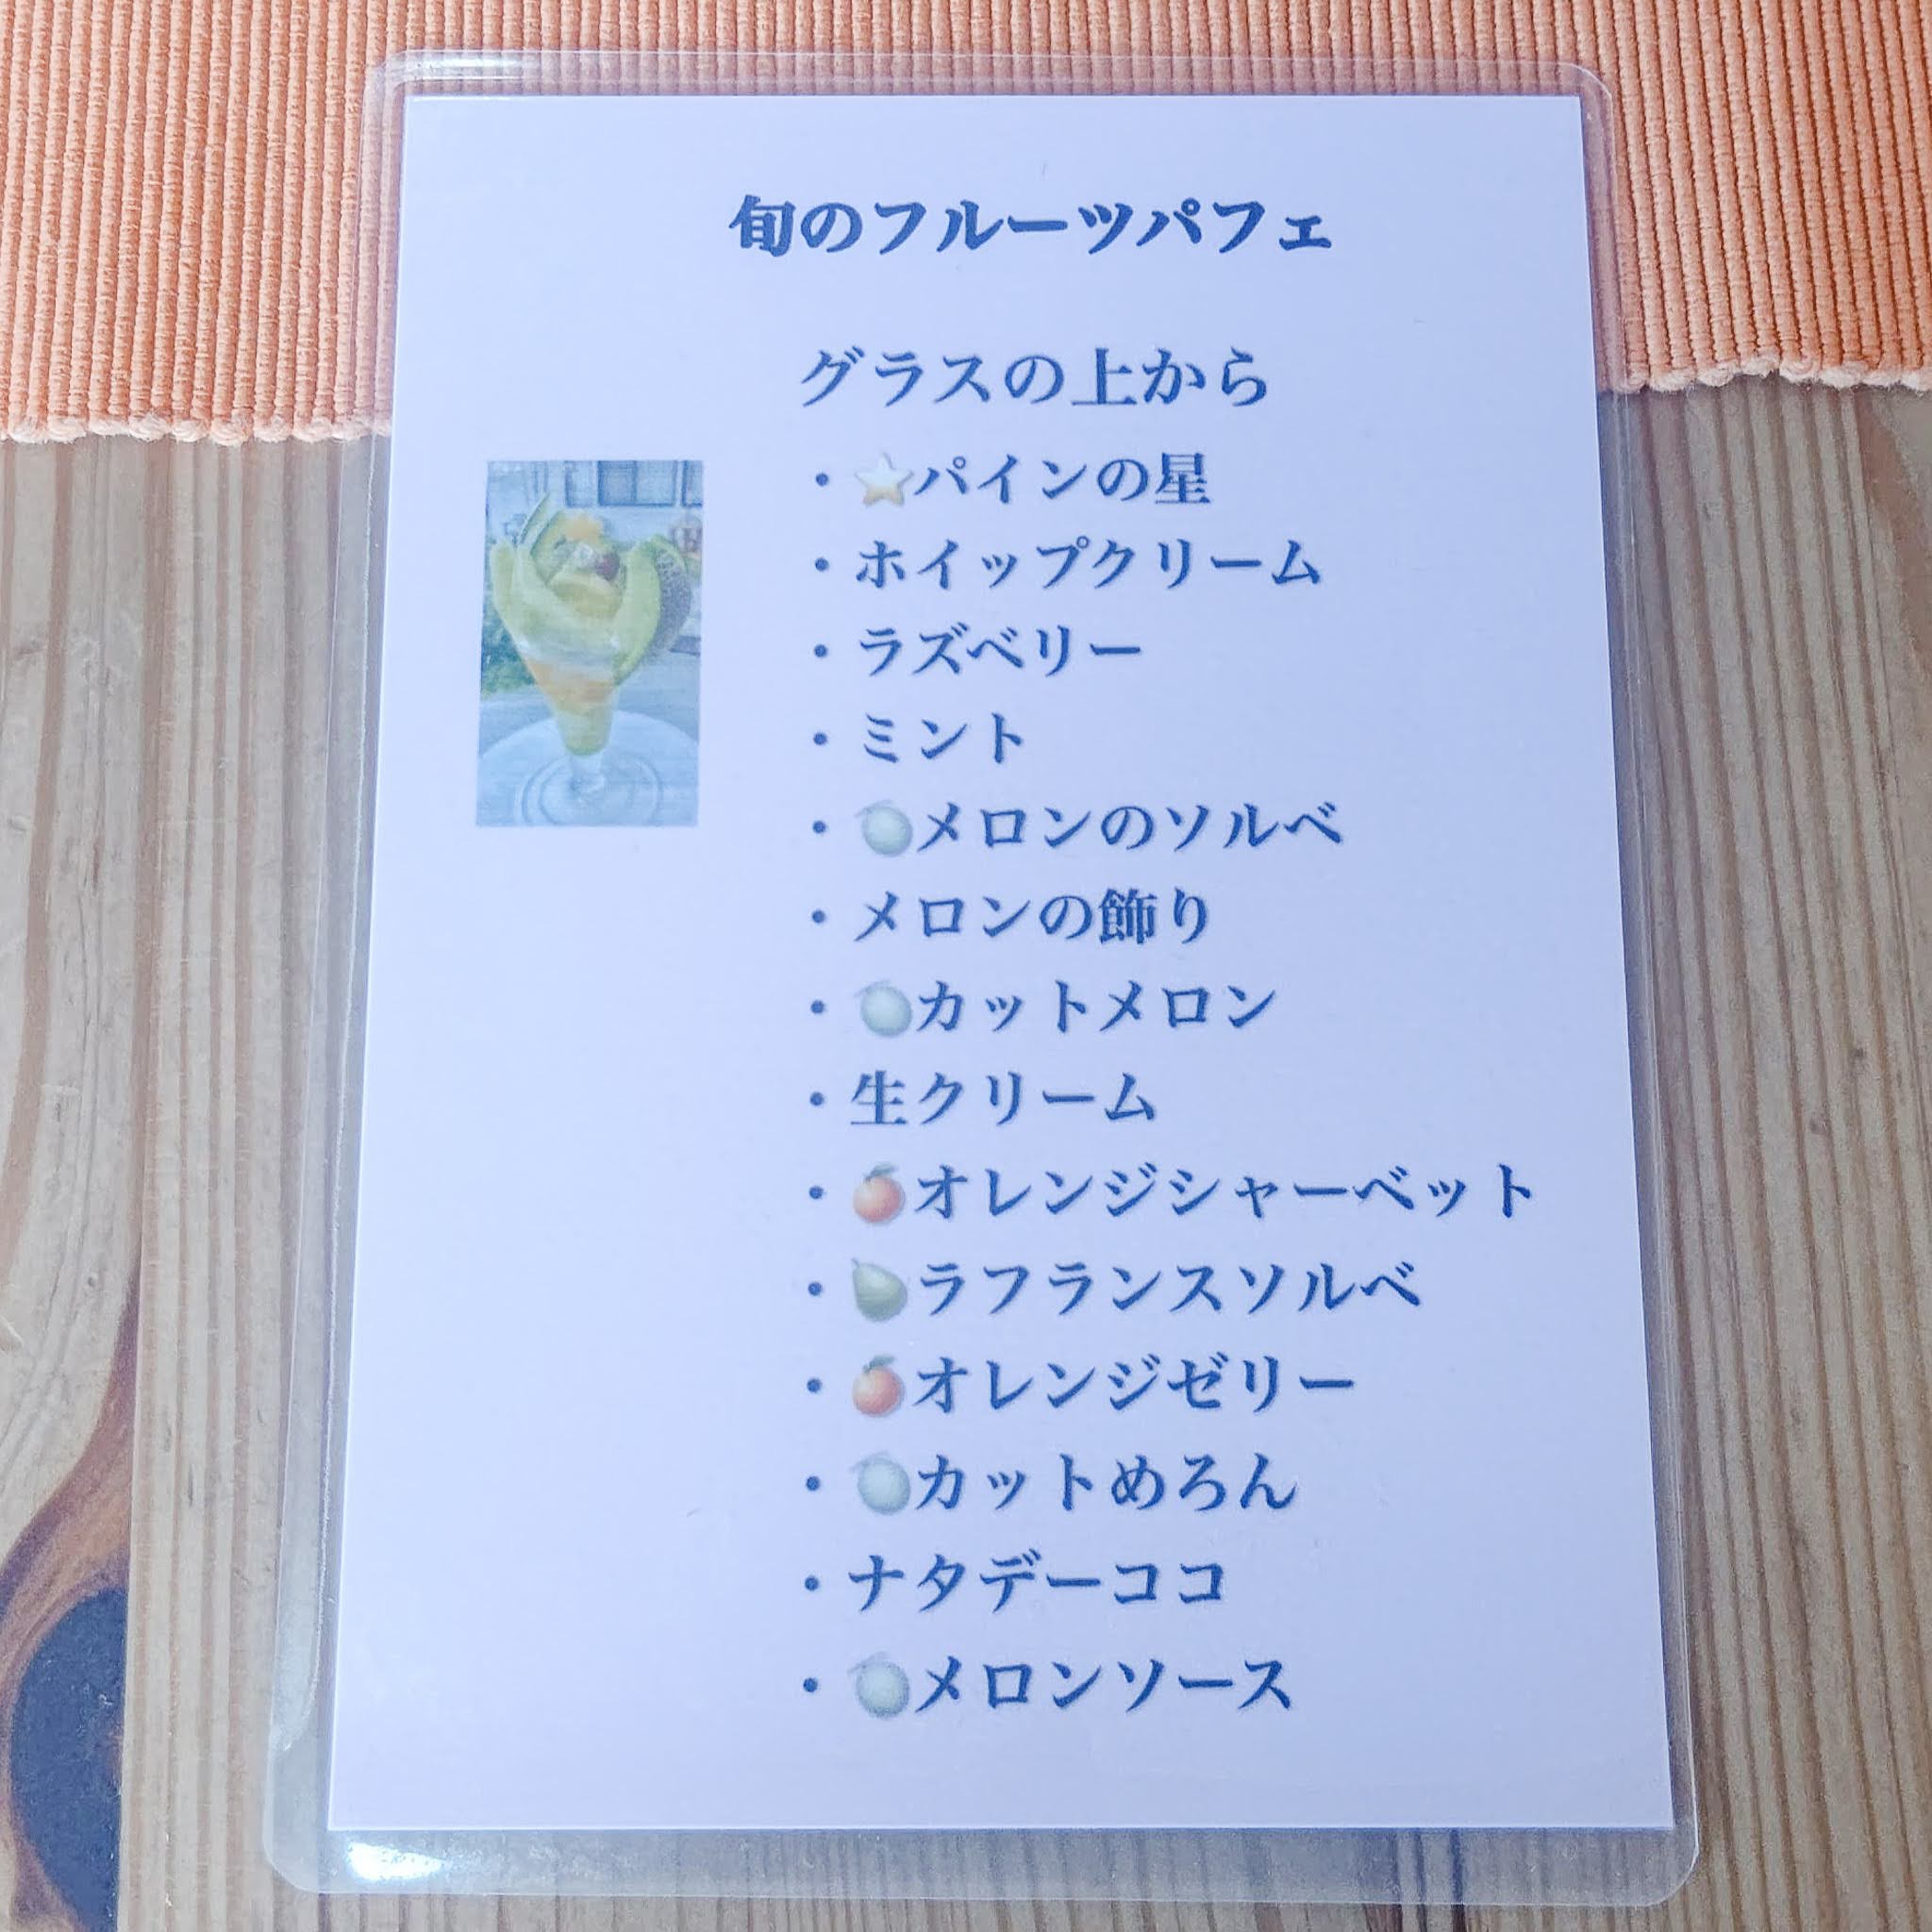 旬のフルーツパフェ
グラスの上から
・⭐パインの星
・ホイップクリーム
・ラズベリー
・ミント
・🍈メロンのソルベ
・メロンの飾り
・🍈カットメロン
・生クリーム
・🍊オレンジシャーベット
・🍐ラフランスソルベ
・🍊オレンジゼリー
・🍈カットめろん
・ナタデーココ
・🍈メロンソース